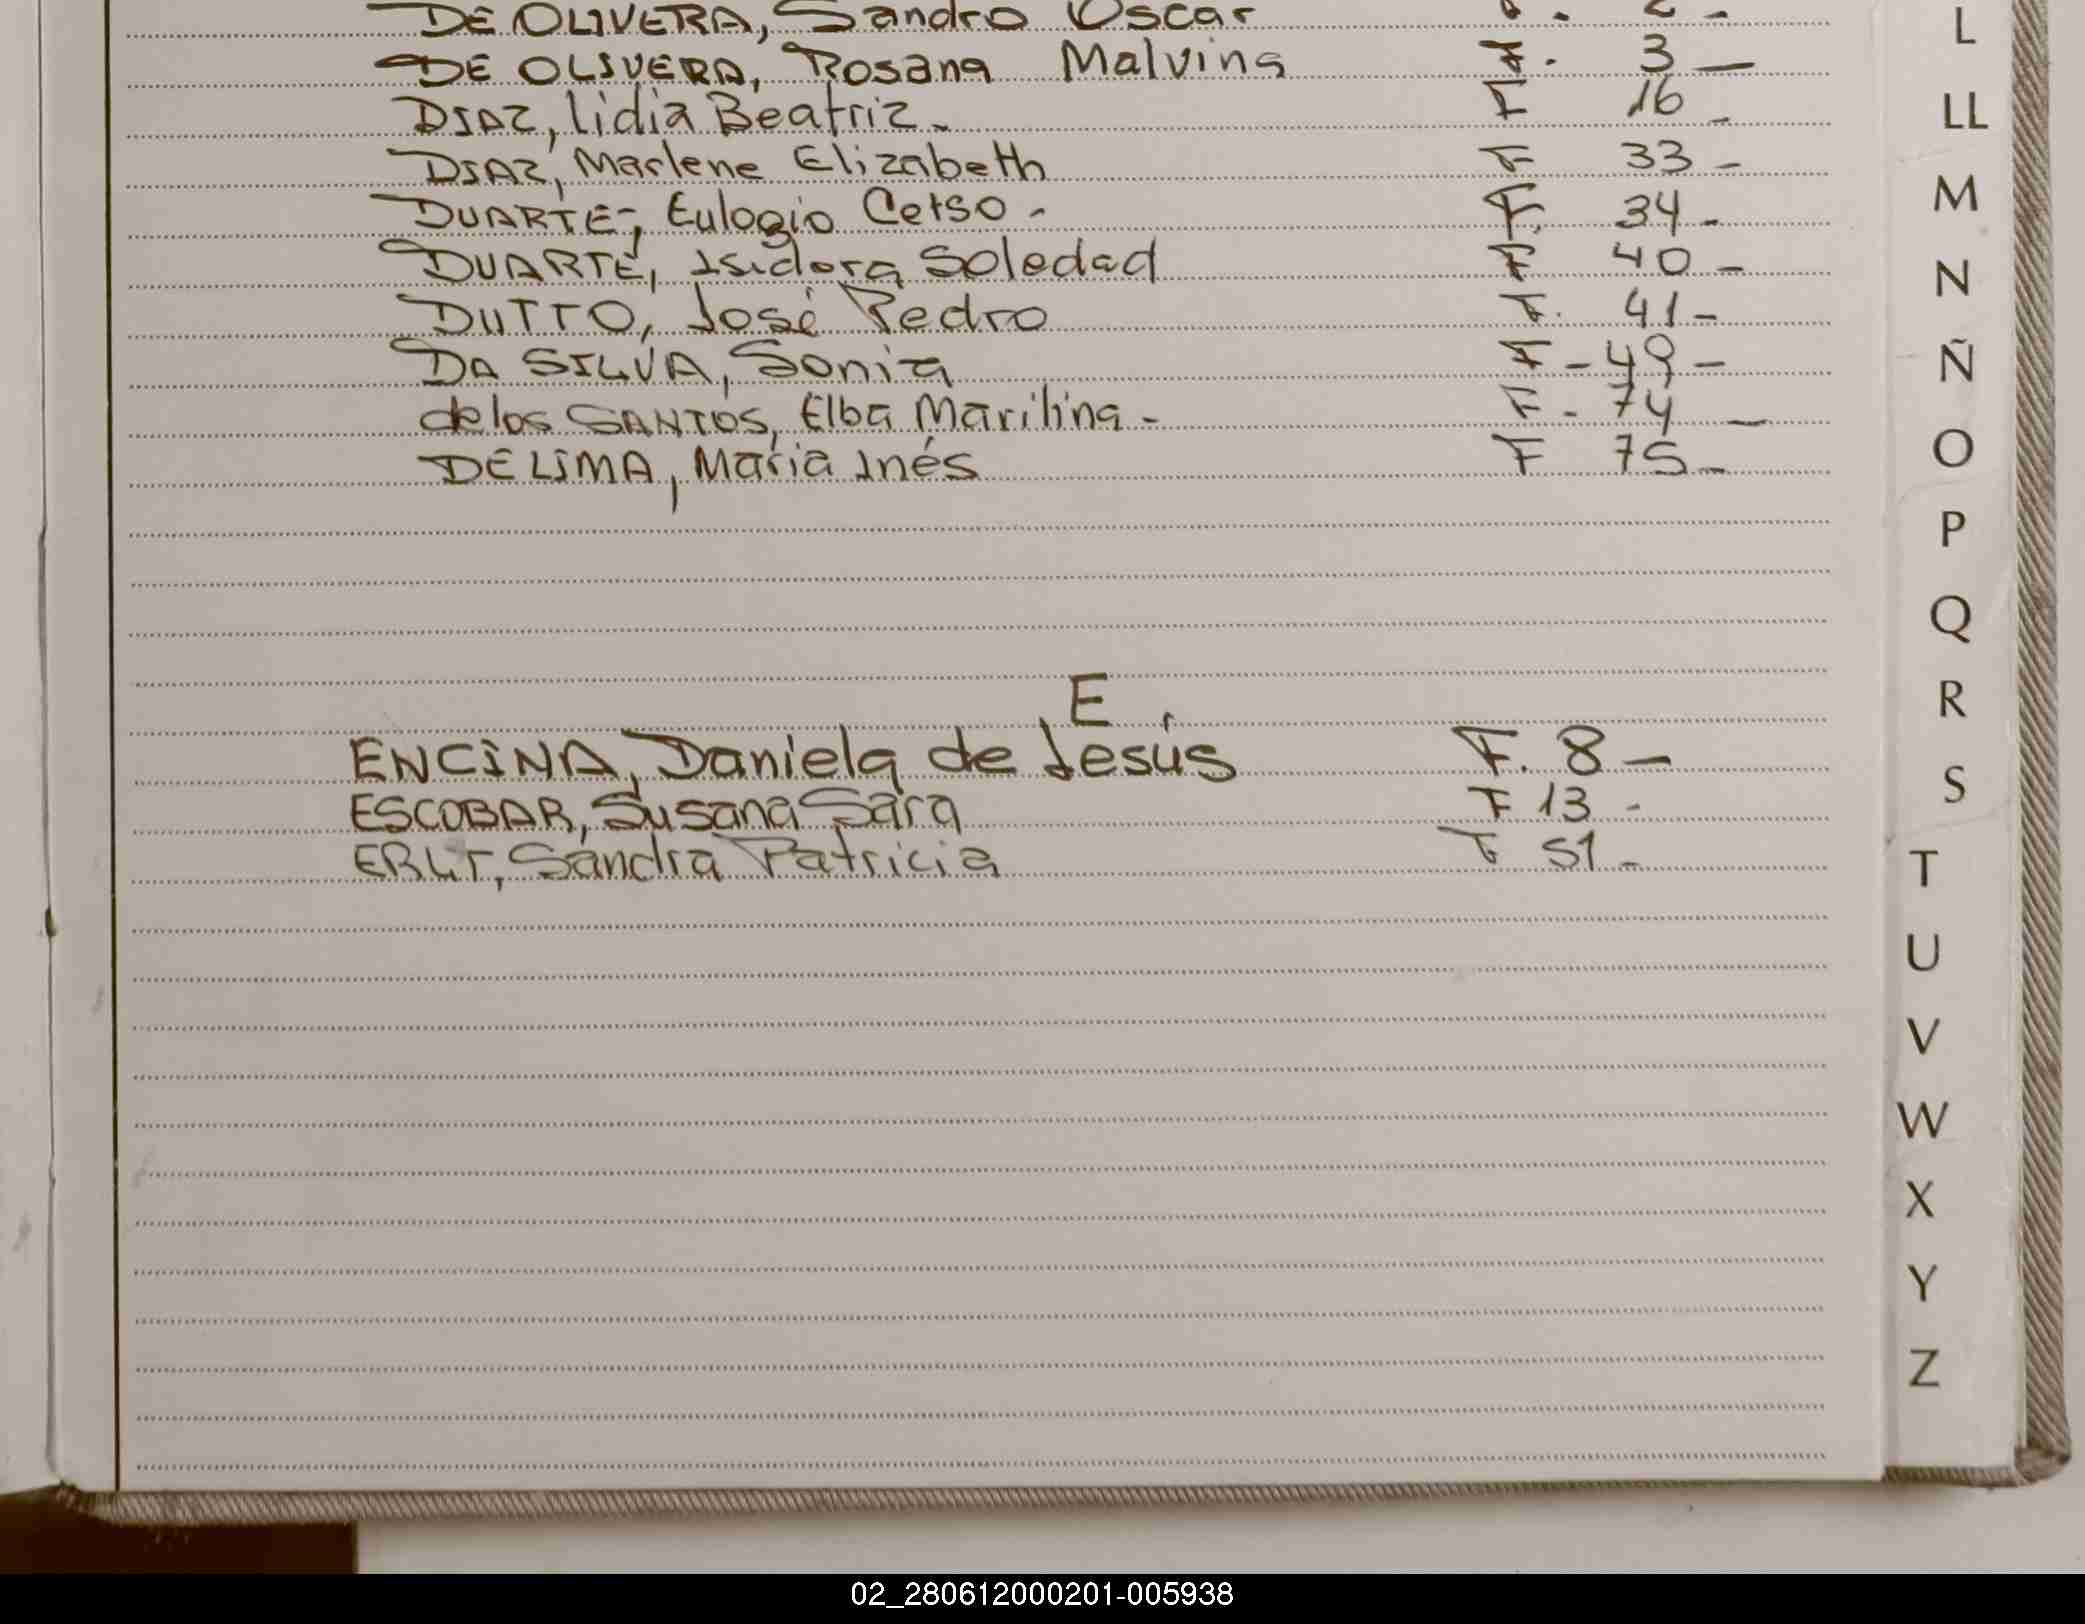 DE OLIVERA, Sandro Oscar F. 2 -
DE OLIVERA, Rosana Malvina F. 3 -
DIAZ, lidia Beatriz - F 16 -
DIAZ, Marlene Elizabeth F 33 -
DUARTE, Eulogio Celso - F. 34 -
DUARTE, Isidora Soledad F 40 -
DUTTO, José Pedro F. 41 -
DA SILVA, Sonia F - 49 -
de los SANTOS, Elba Marilina - F - 74 -
DE LIMA, María Inés F 75 -
E
ENCINA, Daniela de Jesús F. 8 -
ESCOBAR, Susana Sara F 13 -
Sandra Patricia F 51 -
L
LL
M
N
Ñ
O
P
Q
R
S
T
U
V
W
X
Y
Z
02_280612000201-005938